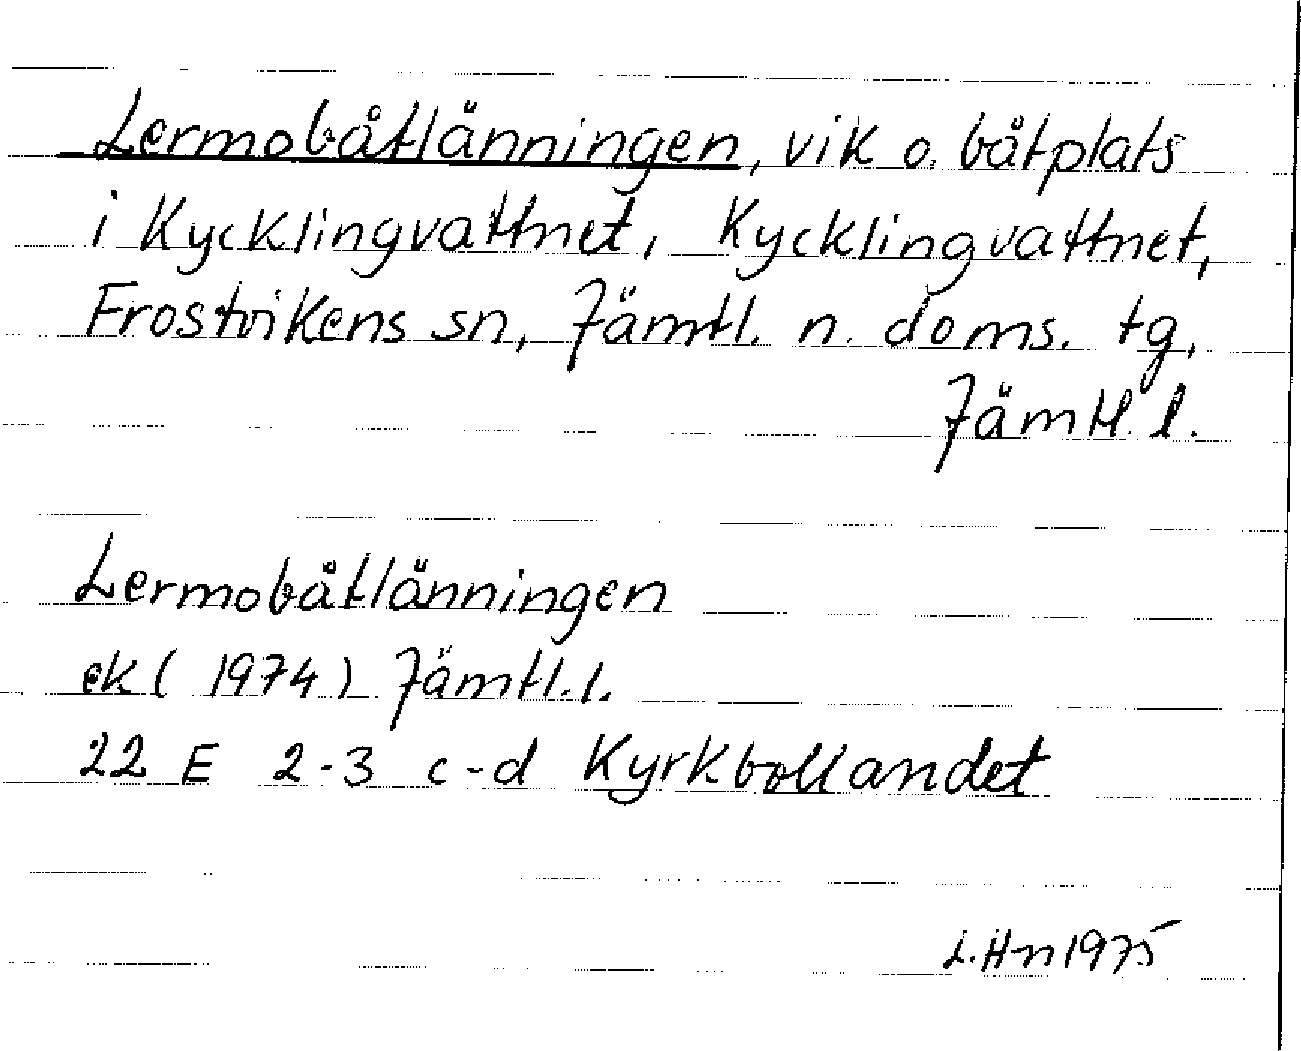 Lermobåtlänningen, vik o. båtplats
i Kycklingvattnet, Kycklingvattnet,
Frostvikens sn, Jämtl. n. doms. tg,
Jämtl. l.
Lermobåtlänningen
ek (1974) Jämtl. l.
22 E 2-3 c-d Kyrkbollandet
L. Hn 1975